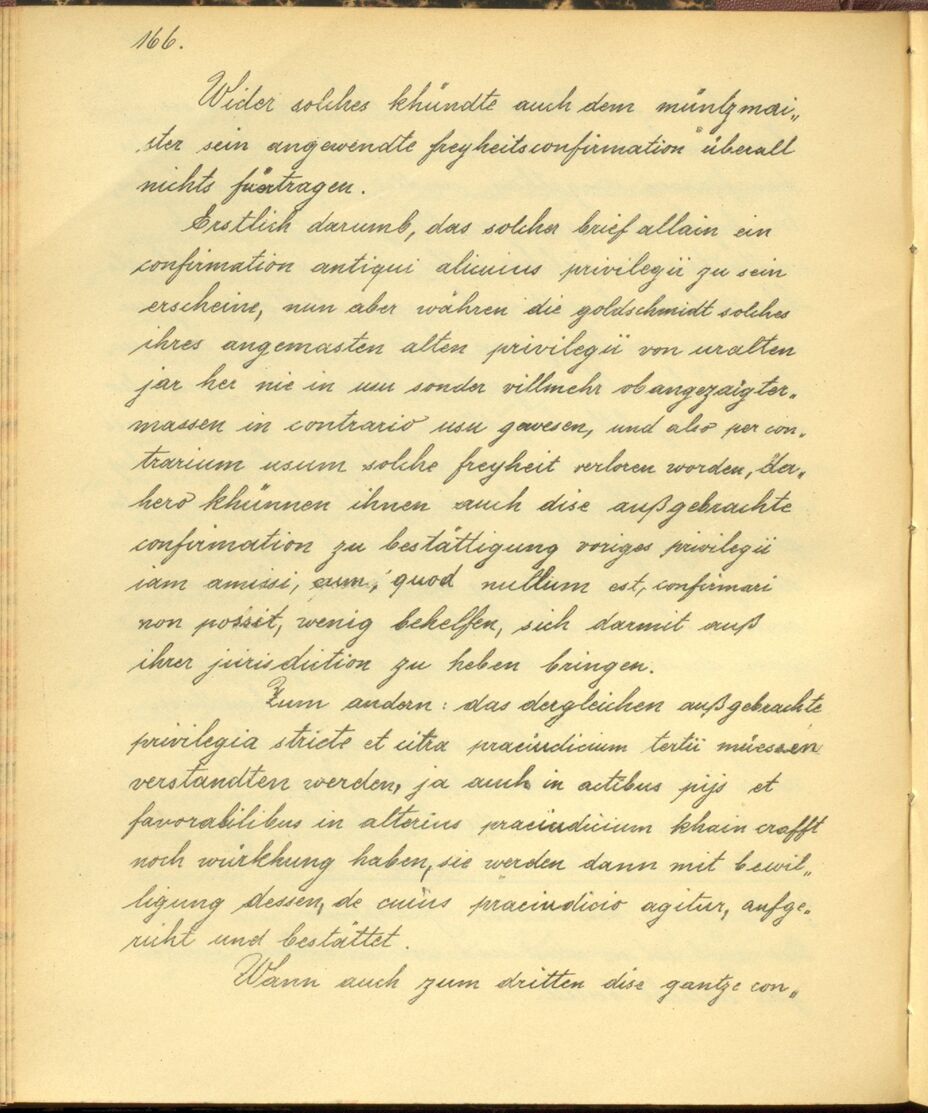 166.
Wider solches khündte auch dem müntzmai„
ster sein angewendte freyheitsconfirmation überall
nichts fürtragen.
Erstlich darumb, das solcher brief allain ein
confirmation antiqui alicuius privilegii zu sein
erscheine, nun aber währen die goldschmidt solches
ihres angemasten alten privilegii von uralten
jar her nie in usu sonder villmehr obangezaigter„
massen in contrario usu gewesen, und also per con„
trarium usum solche freyheit verloren worden, da„
hero khünnen ihnen auch dise außgebrachte
confirmation zu bestättigung voriges privilegii
iam amissi, cum, quod nullum est, confirmari
non possit, wenig behelfen, sich darmit auß
ihrer jurisdiction zu heben bringen.
Zum andern: das dergleichen außgebrachte
privilegia stricte et citra praeiudicium tertii müessen
verstandten werden, ja auch in actibus pijs et
favorabilibus in alterius praeiudicium khain crafft
noch würkhung haben, sie werden dann mit bewil„
ligung dessen, de cuius praeiudicio agitur, aufge„
richt und bestättet.
Wann auch zum dritten dise gantze con„